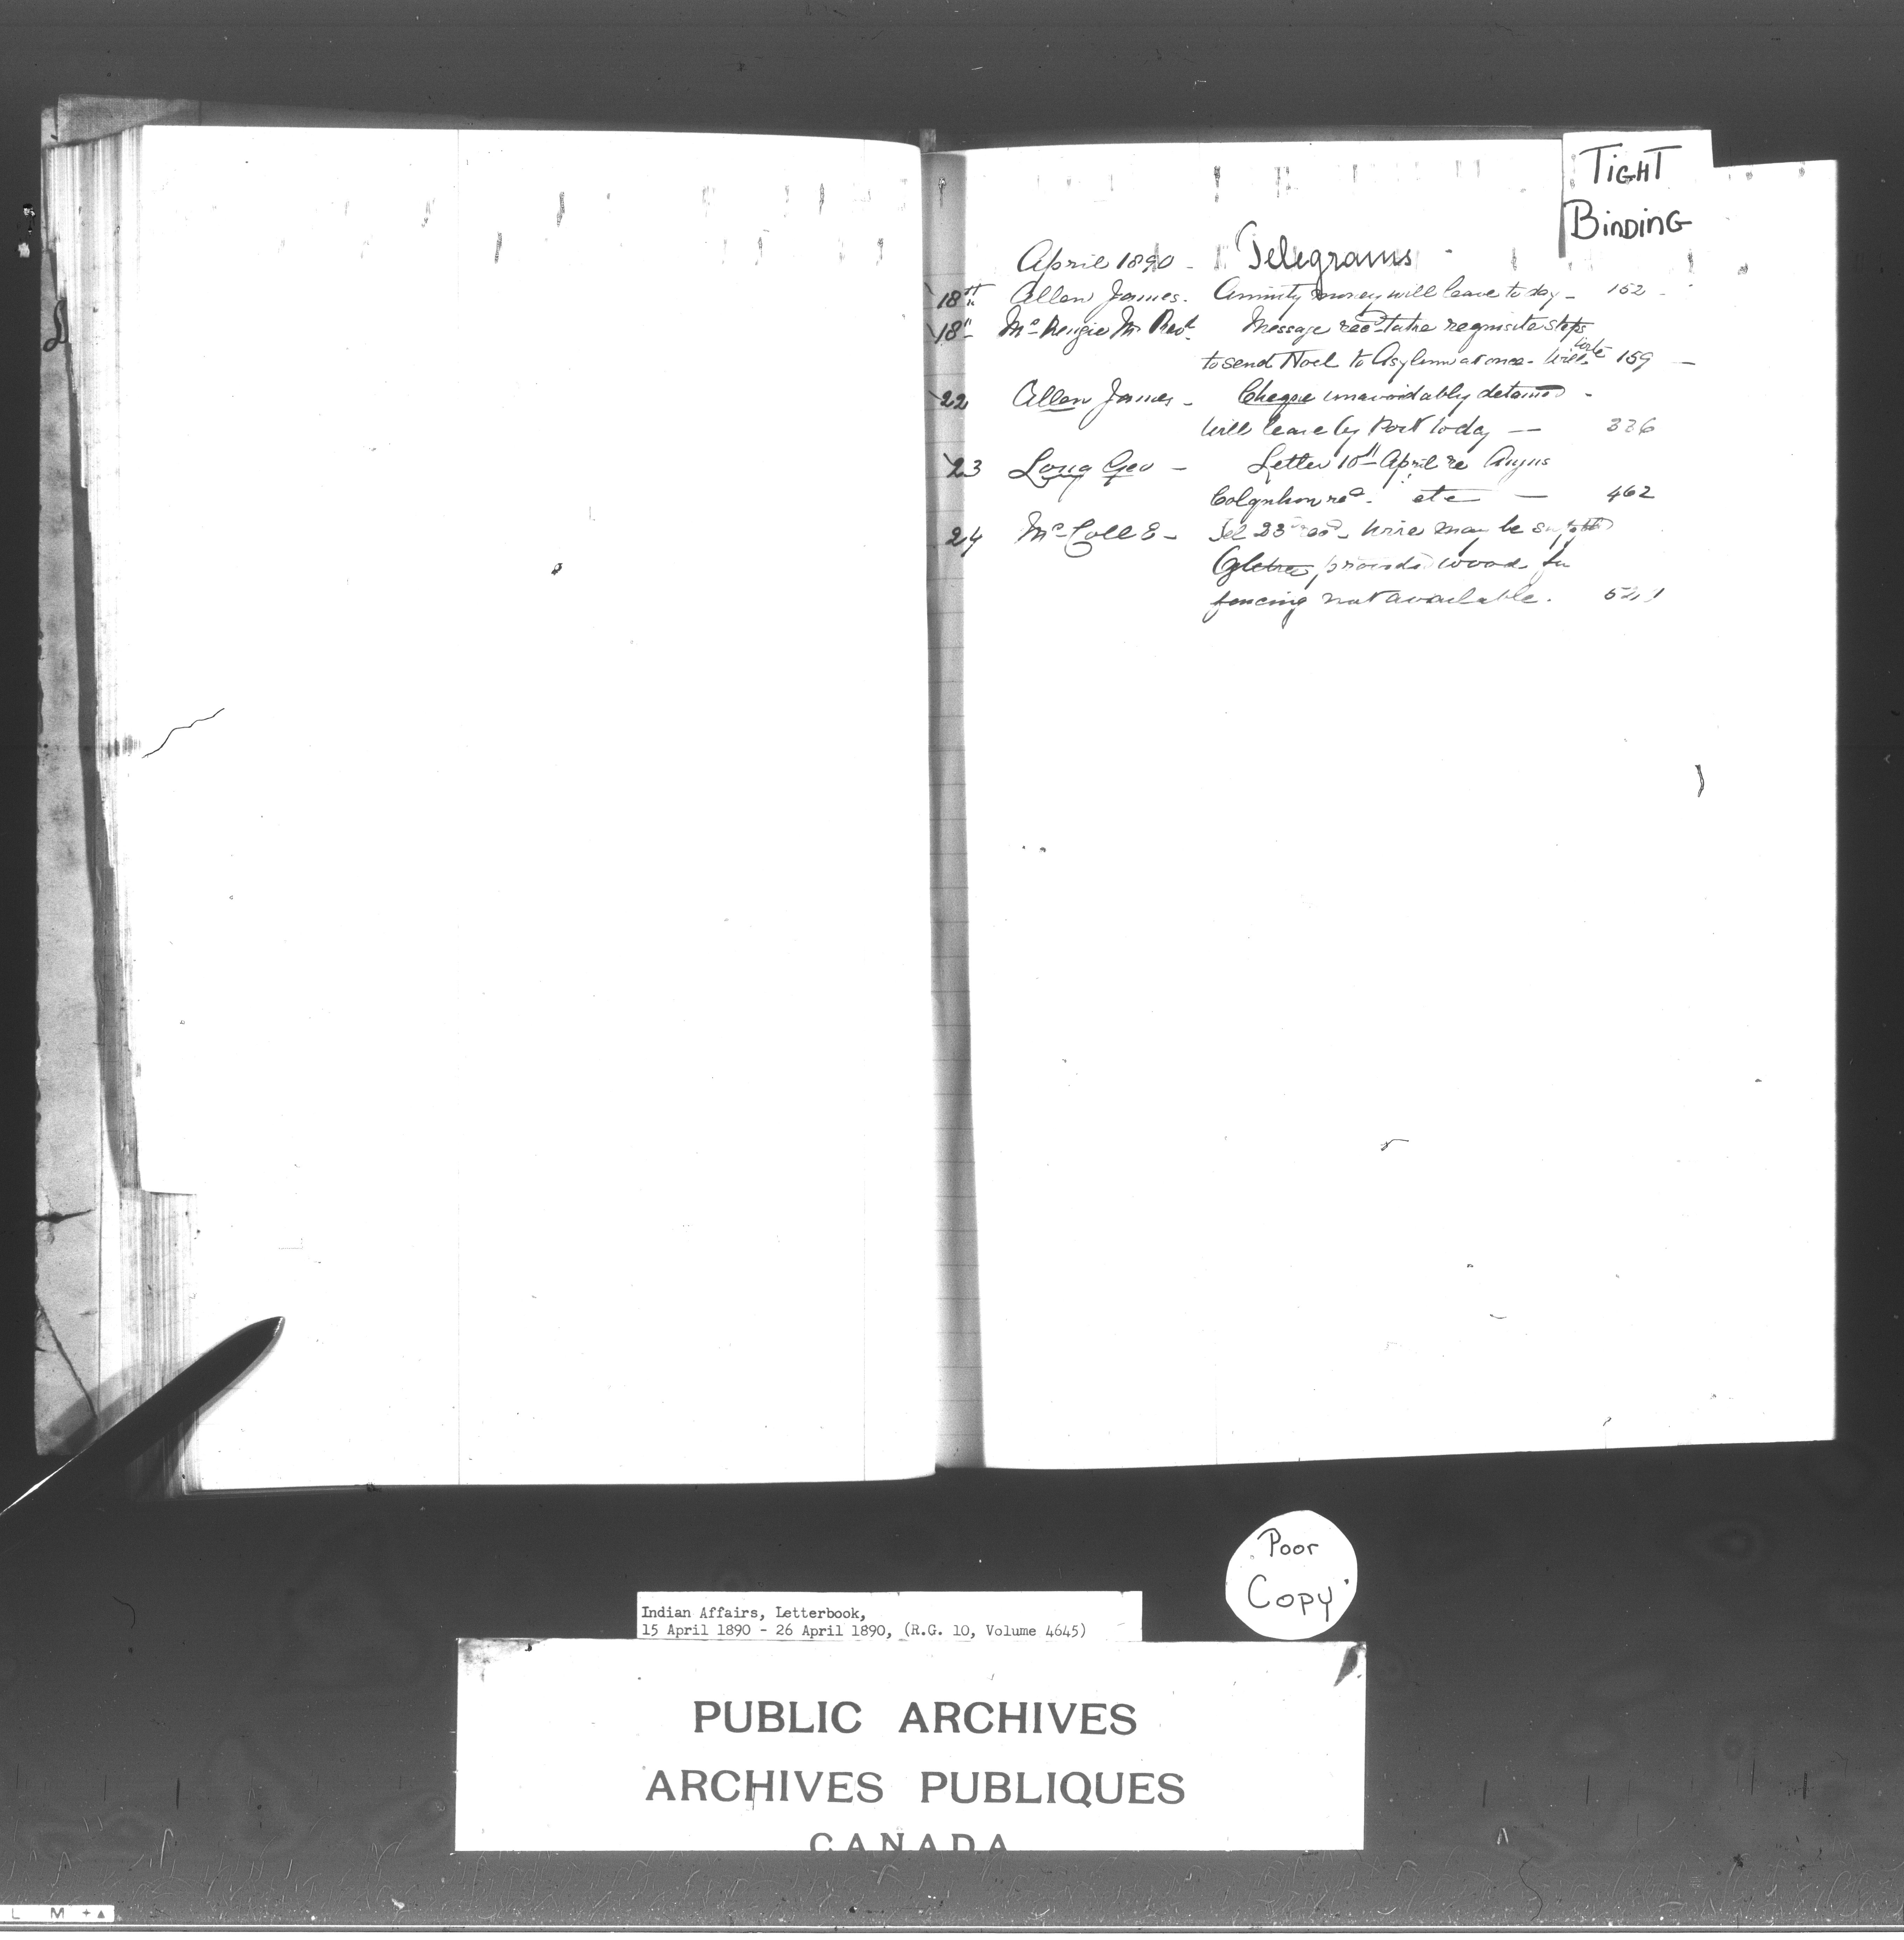 TIGHT
BINDING
April 1890 - Telegrams -
18th Allen James. Annuity money will leave to day - 152 -
18" McKenzie M Revd. Message recd take requisite steps
to send Noel to Asylum at once - Will write 159 -
22 Allen James - Cheque unavoidably detained -
Will leave by Post to day — 336
23 Long Geo - Letter 10th April re Angus
Colquhoun recd. etc — 462
24 McColl E - Tel 23rd recd - wire may be
provided wood for
fencing not available. 521
Poor
Copy
Indian Affairs, Letterbook,
15 April 1890 - 26 April 1890, (R.G. 10, Volume 4645)
PUBLIC ARCHIVES
ARCHIVES PUBLIQUES
CANADA
L M